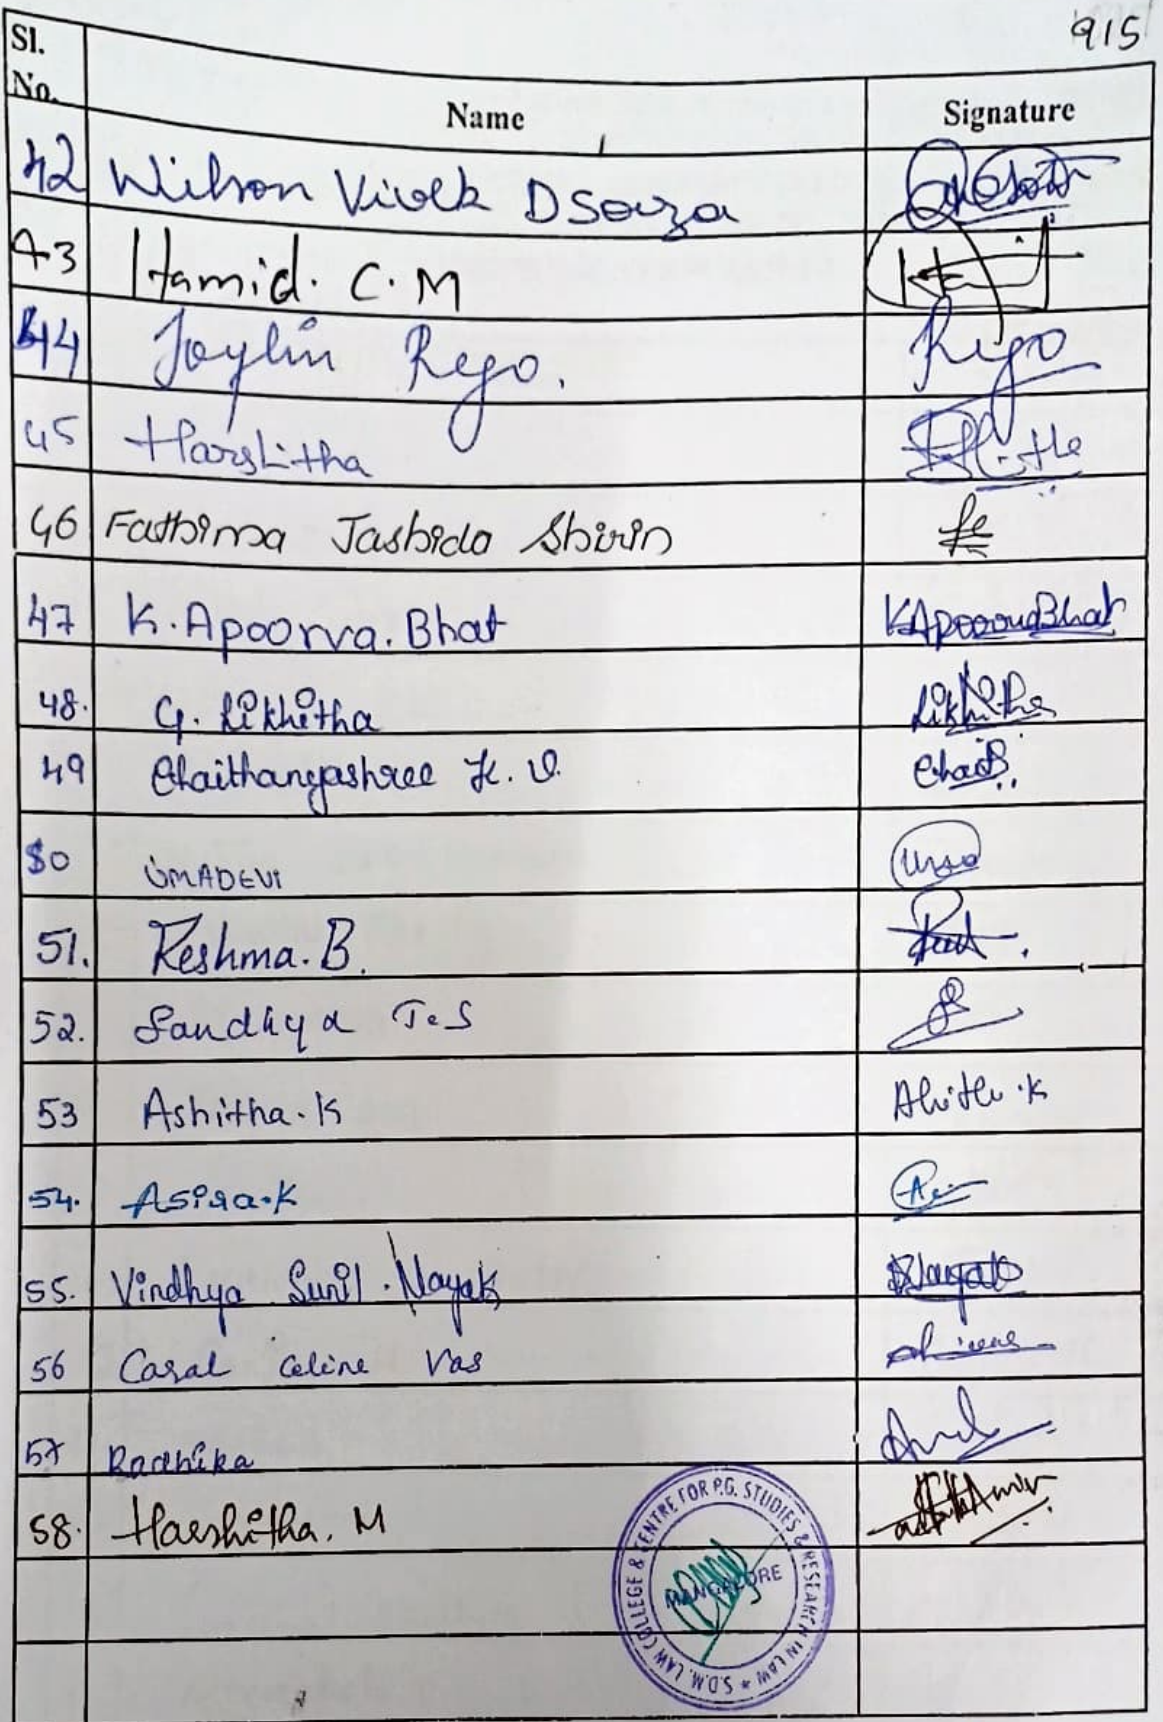 915
Sl. No. Name Signature
42 Wilson Vivek D Souza
43 Hamid. C. M
44 Joylin Rego. Rego
45 Harshitha
46 Fathima Jashida Shirin
47 K. Apoorva. Bhat K Apoorva Bhat
48. G. Likhitha Likhitha
49 Chaithanyashree K. V.
50 UMADEVI Uma
51. Reshma. B.
52. Sandhya T. S
53 Ashitha. K
54. Asira. K
55. Vindhya Sunil. Nayak Nayak
56 Casal Celine Vas
57 Radhika
58. Harshitha. M
S.D.M. LAW COLLEGE & CENTRE FOR P.G. STUDIES & RESEARCH IN LAW *
MANGALORE